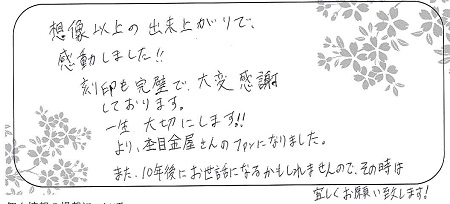 想像以上の出来上がりで、
感動しました!!
刻印も完璧で、大変感謝
しております。
一生大切にします!!
より、杢目金屋さんのファンになりました。
また、10年後にお世話になるかもしれませんので、その時は
宜しくお願い致します!